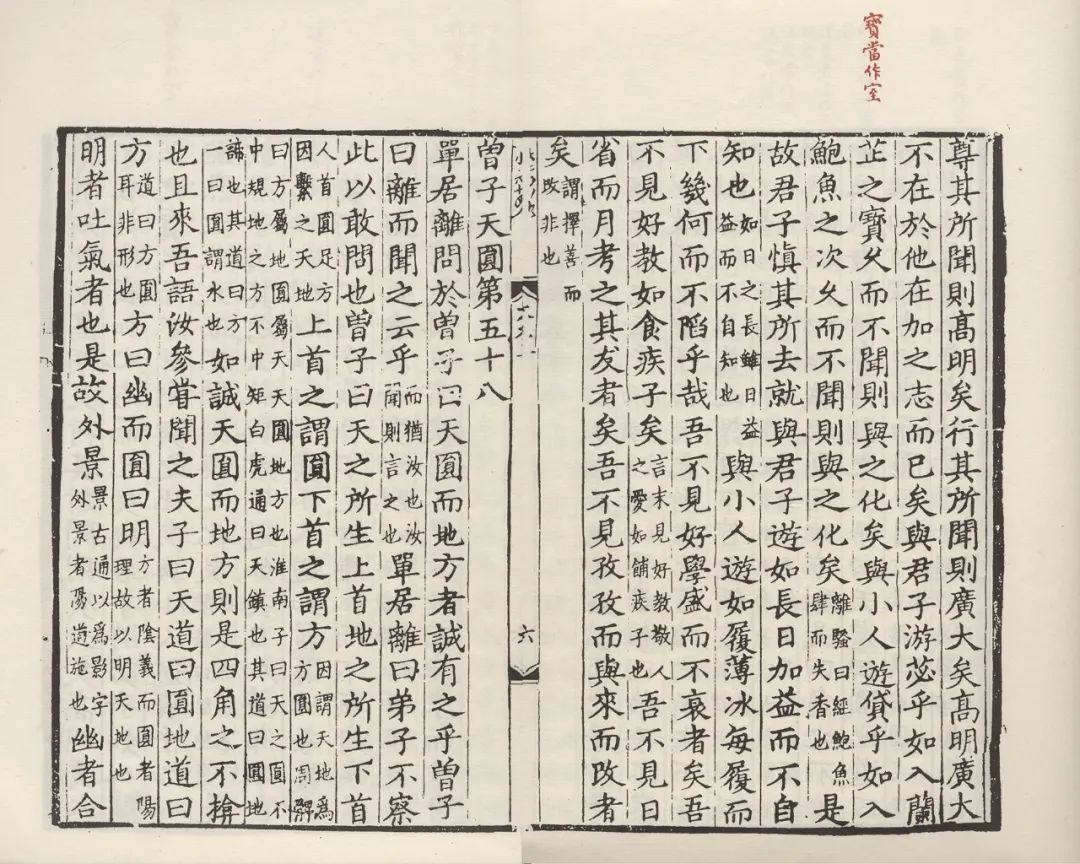 寶當作室
尊其所聞則髙明矣行其所聞則廣大矣髙明廣大
不在於他在加之志而已矣與君子游苾乎如入蘭
芷之寶久而不聞則與之化矣與小人遊貸乎如入
鮑魚之次久而不聞則與之化矣離騷曰經鮑魚肆而失香也是
故君子慎其所去就與君子遊如長日加益而不自
知也如日之長雖日益而不自知也與小人遊如履薄冰每履而
下幾何而不陷乎哉吾不見好學盛而不衰者矣吾
不見好教如食疾子矣言未見好教人之愛如餔疾子也吾不見日
省而月考之其友者矣吾不見孜孜而與來而改者
矣謂擇善而改非也
六
曾子天圓第五十八
單居離問於曾子曰天圓而地方者誠有之乎曾子
曰離而聞之云乎而猶汝也汝聞則言之也單居離曰弟子不察
此以敢問也曾子曰天之所生上首地之所生下首
人首圓足方因繫之天地上首之謂圓下首之謂方因謂天地爲方圓也周髀
曰方屬地圓屬天天圓地方也淮南子曰天之圓不中規地之方不中矩白虎通曰天鎮也其道曰圓地
諦也其道曰方一曰圓謂水也如誠天圓而地方則是四角之不揜
也且來吾語汝參甞聞之夫子曰天道曰圓地道曰
方道曰方圓耳非形也方曰幽而圓曰明方者陰義而圓者陽理故以明天地也
明者吐氣者也是故外景景古通以爲影字外景者陽道施也幽者合